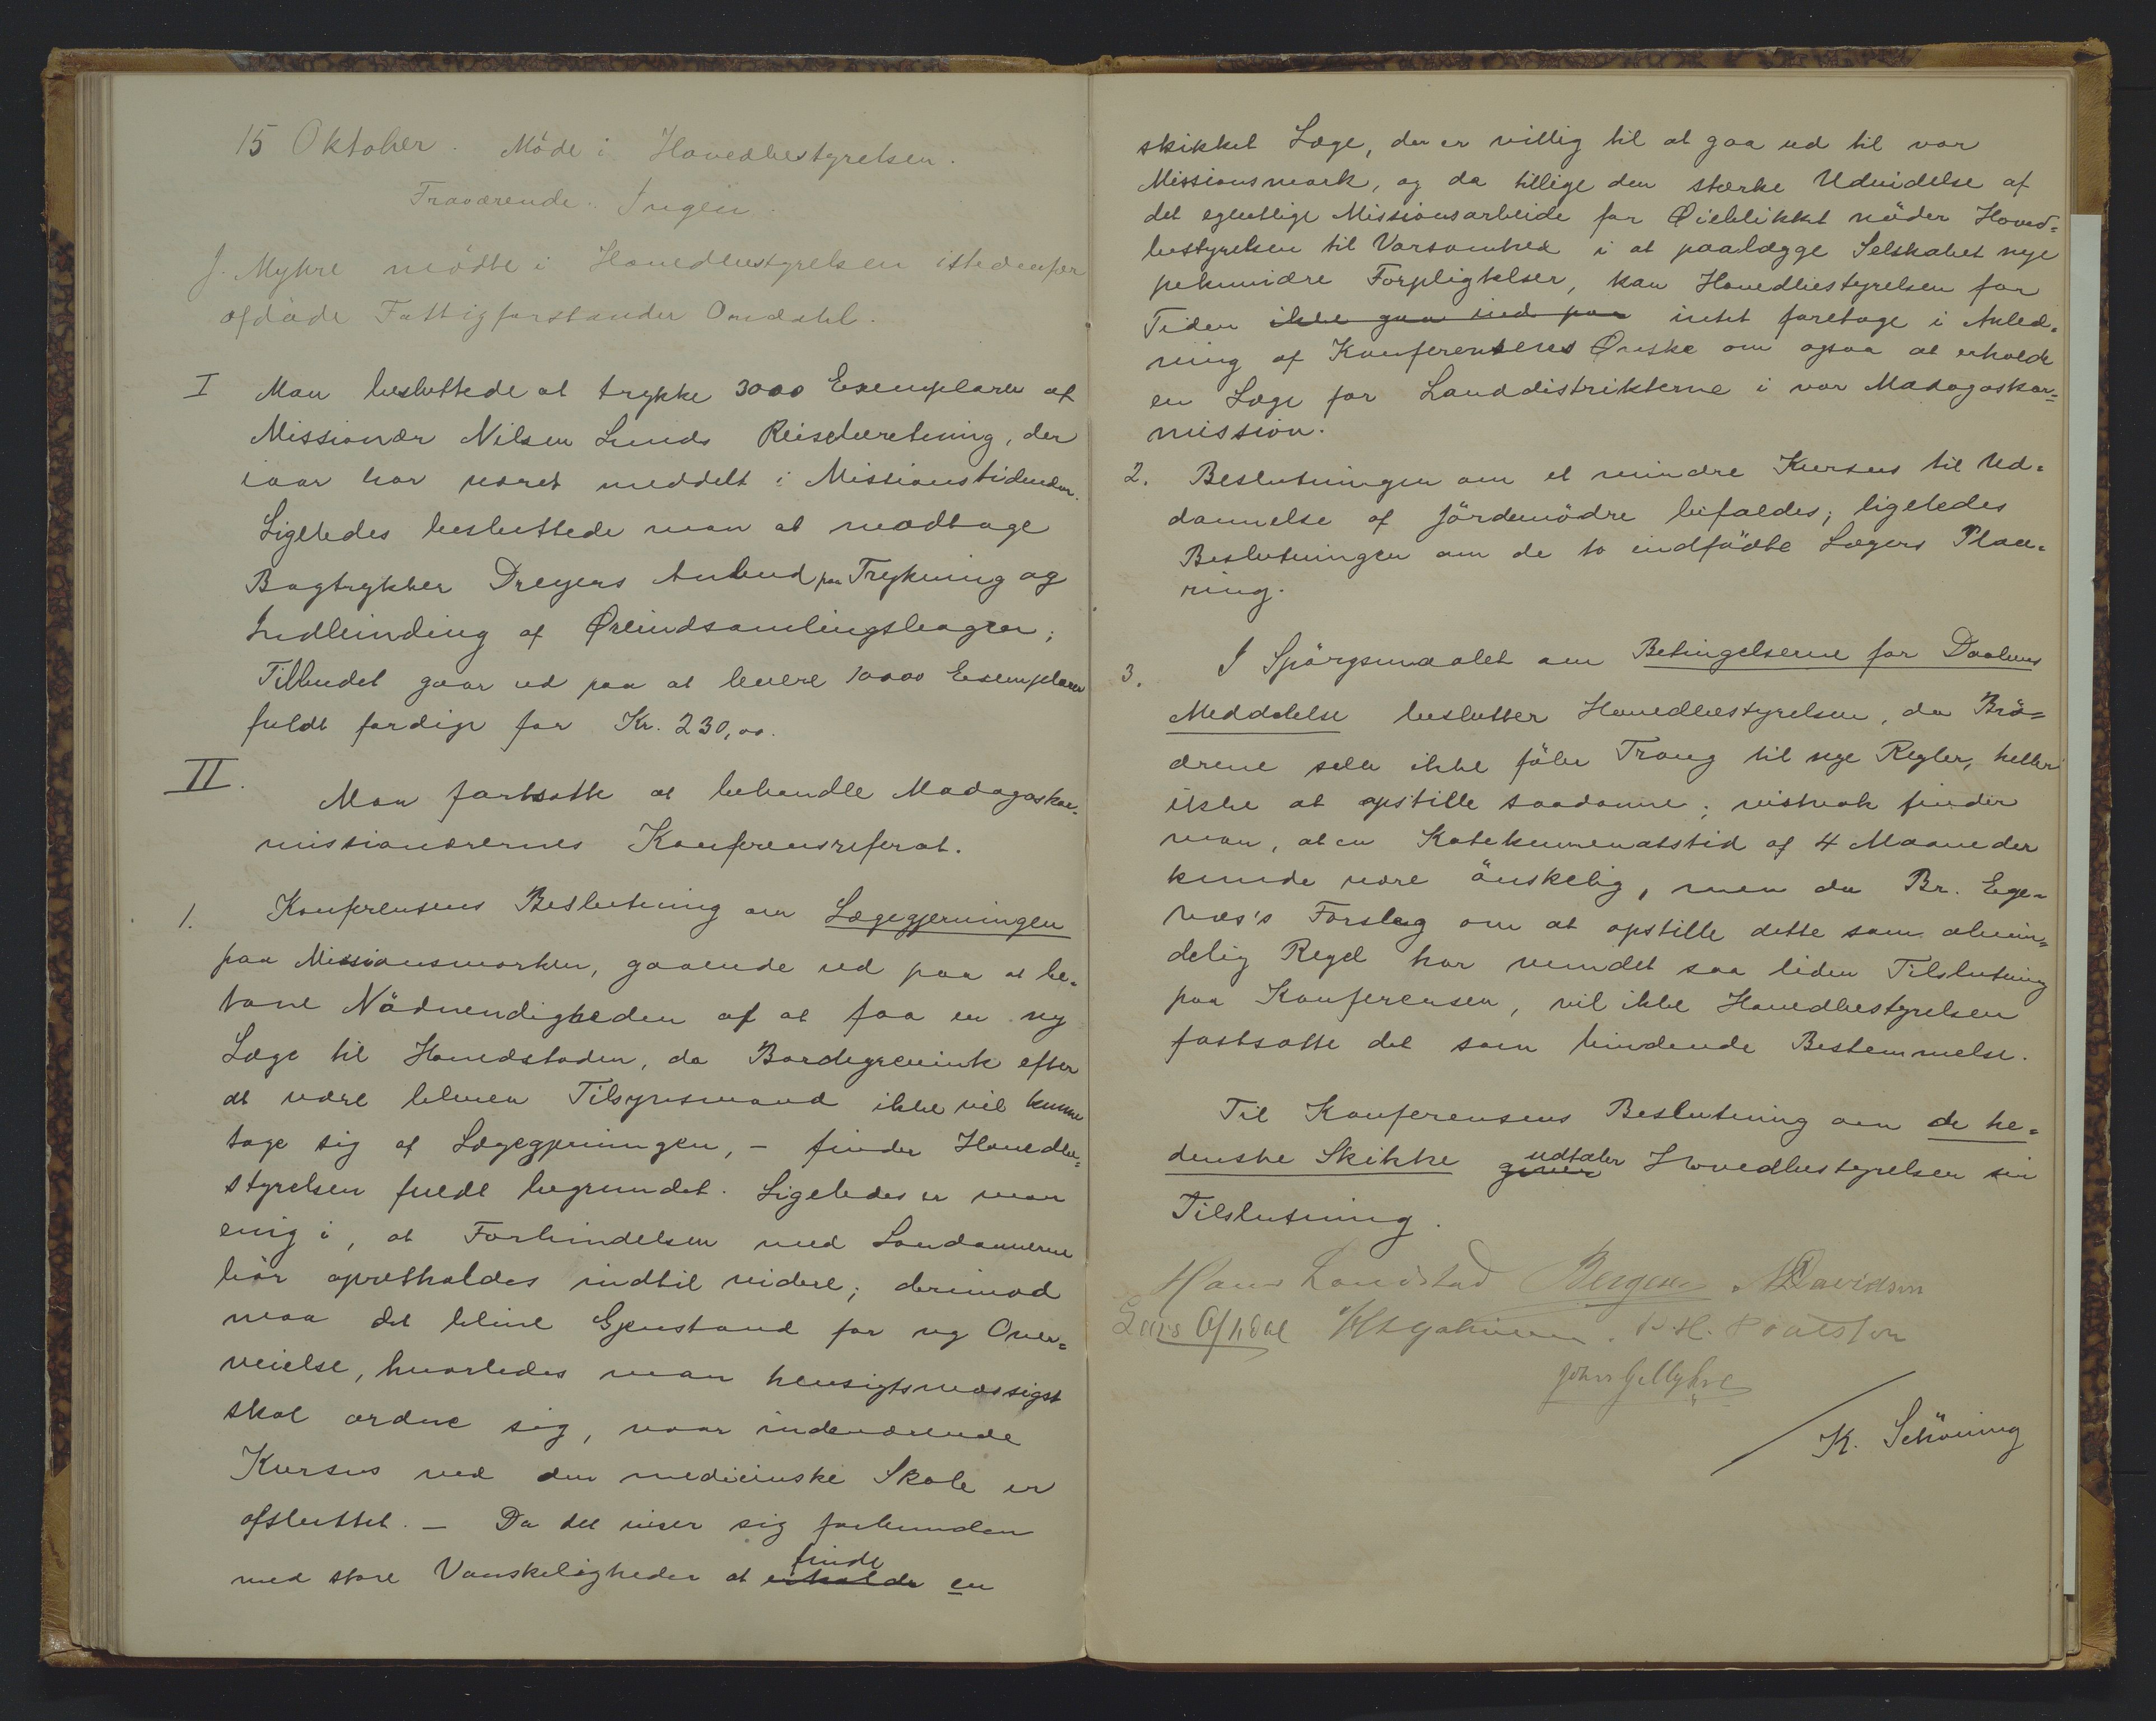 15 Oktober. Möde i Hovedbestyrelsen.
Fraværende: Ingen.
J. Myhre mödte i Hovedbestyrelsen istedenfor
afdöde Fattigforstander Omdahl.
I Man besluttede at trykke 3000 Exemplarer af
Missionær Nilsen Lunds Reiseberetning, der
iaar har været meddelt i Missionstidenden.
Ligeledes besluttede man at modtage
Bogtrykker Dreyers Anbud paa Trykning og
Indbinding af Øreindsamlingsbøger;
Tilbudet gaar ud paa at levere 10000 Exemplarer
fuldt færdige for Kr. 230,00.
II. Man fortsatte at behandle Madagaskar-
missionærernes Konferensreferat.
1. Konferensens Beslutning om Lægegjerningen
paa Missionsmarken, gaaende ud paa at be-
tone Nödvendigheden af at faa en ny
Læge til Hovedstaden, da Borchgrevink efter
at være bleven Tilsynsmand ikke vil kunne
tage sig af Lægegjerningen, – finder Hovedbe-
styrelsen fuldt begrundet. Ligeledes er man
enig i, at Forbindelsen med Londonnerne
bör opretholdes indtil videre; derimod
maa det blive Gjenstand for ny Over-
veielse, hvorledes man hensigtsmæssigst
skal ordne sig, naar indeværende
Kursus ved den medicinske Skole er
afsluttet. – Da det viser sig forbunden
med store Vanskeligheder at erholde finde en
skikket Læge, der er villig til at gaa ud til vor
Missionsmark, og da tillige den stærke Udvidelse af
det egentlige Missionsarbeide for Øieblikket nöder Hoved-
bestyrelsen til Varsomhed i at paalægge Selskabet nye
pekuniære Forpligtelser, kan Hovedbestyrelsen for
Tiden ikke gaa ind paa intet foretage i Anled-
ning af Konferensens Ønske om ogsaa at erholde
en Læge for Landdistrikterne i vor Madagaskar-
mission.
2. Beslutningen om et mindre Kursus til Ud-
dannelse af Jördemödre bifaldes; ligeledes
Beslutningen om de to indfödte Lægers Plac-
ring.
3. I Spörgsmaalet om Betingelserne for Daabens
Meddelelse beslutter Hovedbestyrelsen, da Brö-
drene selv ikke föler Trang til nye Regler, heller
ikke at opstille saadanne; vistnok finder
man, at en Katekumenatstid af 4 Maaneder
kunde være önskelig, men da Br. Ege-
næs's Forslag om at opstille dette som almin-
delig Regel har vundet saa liden Tilslutning
paa Konferensen, vil ikke Hovedbestyrelsen
fastsætte det som bindende Bestemmelse.
Til Konferensens Beslutning om de he-
denske Skikke giver udtaler Hovedbestyrelsen sin
Tilslutning.
Hans Landstad Bergesen Davidsen
Lars Oftedal
John G Myhre
K. Schöning